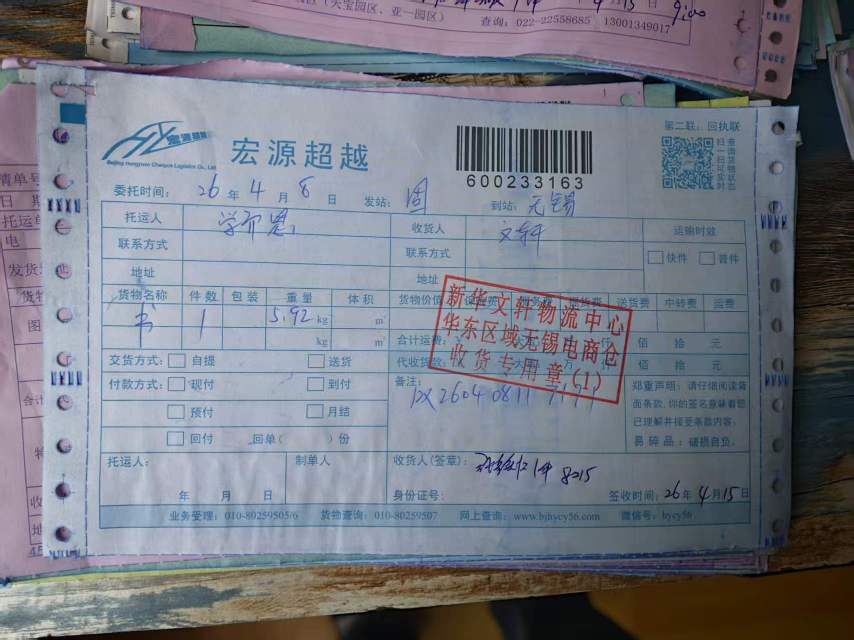 (天宝园区、亚一园区)
15日 9:00
查询: 022-22558685 13001349017
第二联: 回执联
宏源超越
Beijing Hongyuan Chaoyue Logistics Co., Ltd
宏源超越
600233163
扫一扫
委托时间: 26年4月8日 发站: 固 到站: 无锡
托运人 学而思 收货人 文轩 运输时效
联系方式 联系方式 快件 普件
地址 地址
货物名称 件数 包装 重量 体积 货物价值 保险费 送货费 中转费 运费
书 1 5.92 kg m³
kg m³ 合计运费: 仟 佰 拾 元
交货方式: 自提 送货 代收货款: 万 佰 拾 元
付款方式: 现付 到付 备注:
预付 月结
回付 回单( )份
新华文轩物流中心
华东区域无锡电商仓
收货专用章(1)
郑重声明: 请仔细阅读背
面条款, 你的签名意味着您
已理解并接受条款内容。
易碎品: 破损自负。
托运人: 制单人 收货人(签章): 8215
年 月 日 身份证号: 签收时间: 26年4月15日
业务受理: 010-80259505/6 货物查询: 010-80259507 网上查询: www.bjhycy56.com 微信号: hycy56